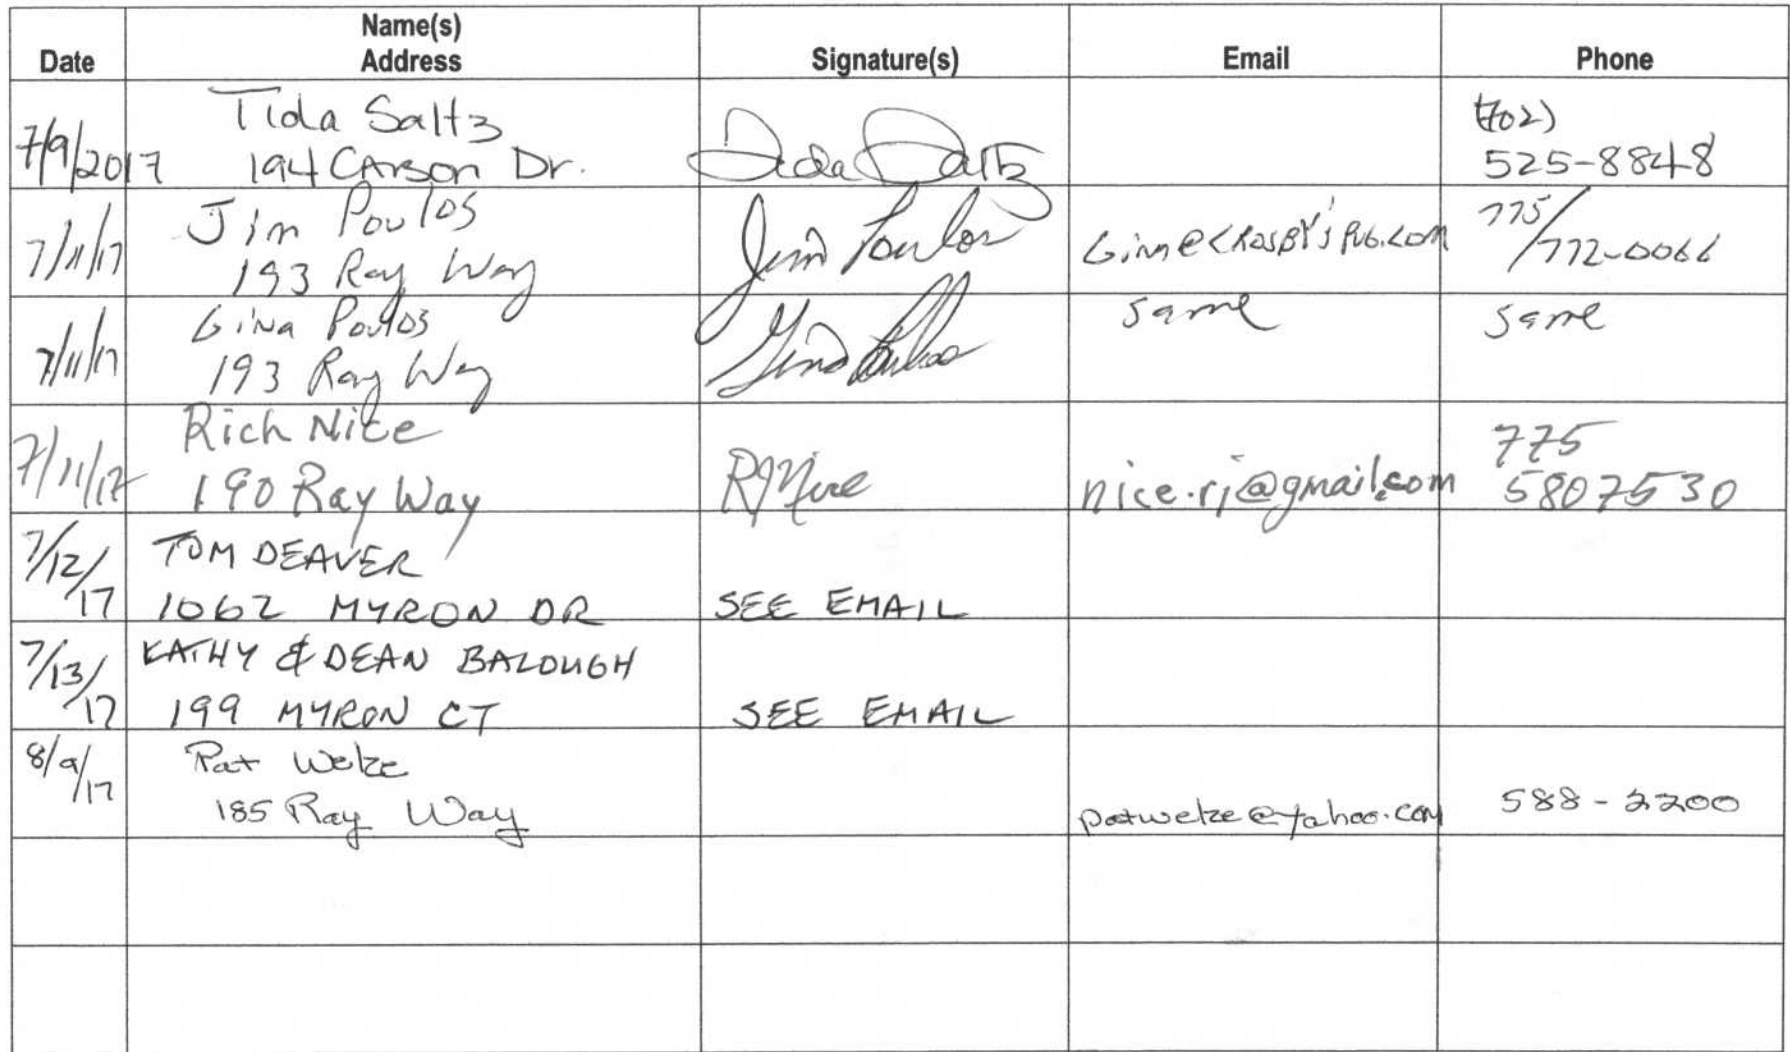 Date
Name(s)
Address
Signature(s)
Email
Phone
7/9/2017
Tida Saltz
194 CArson Dr.
Tida Saltz
(702)
525-8848
7/11/17
Jim Poulos
193 Ray Way
Jim Poulos
775/
772-0066
7/11/17
Gina Poulos
193 Ray Way
Gina Poulos
same
same
7/11/17
Rich Nice
190 Ray Way
RJNice
nice.rj@gmail.com
775
5807530
7/12/
17
TOM DEAVER
1062 MYRON DR
SEE EMAIL
7/13/
17
KATHY & DEAN BALOUGH
199 MYRON CT
SEE EMAIL
8/9/17
Pat Welze
185 Ray Way
patwelze@yahoo.com
588-2200